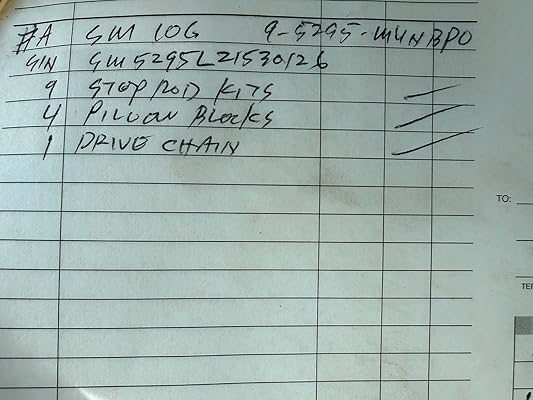 #A SM 10G 9-5295-MUNBPO
S/N SM5295L21530126
9 STOP ROD KITS
4 PILLOW BLOCKS
1 DRIVE CHAIN
TO: